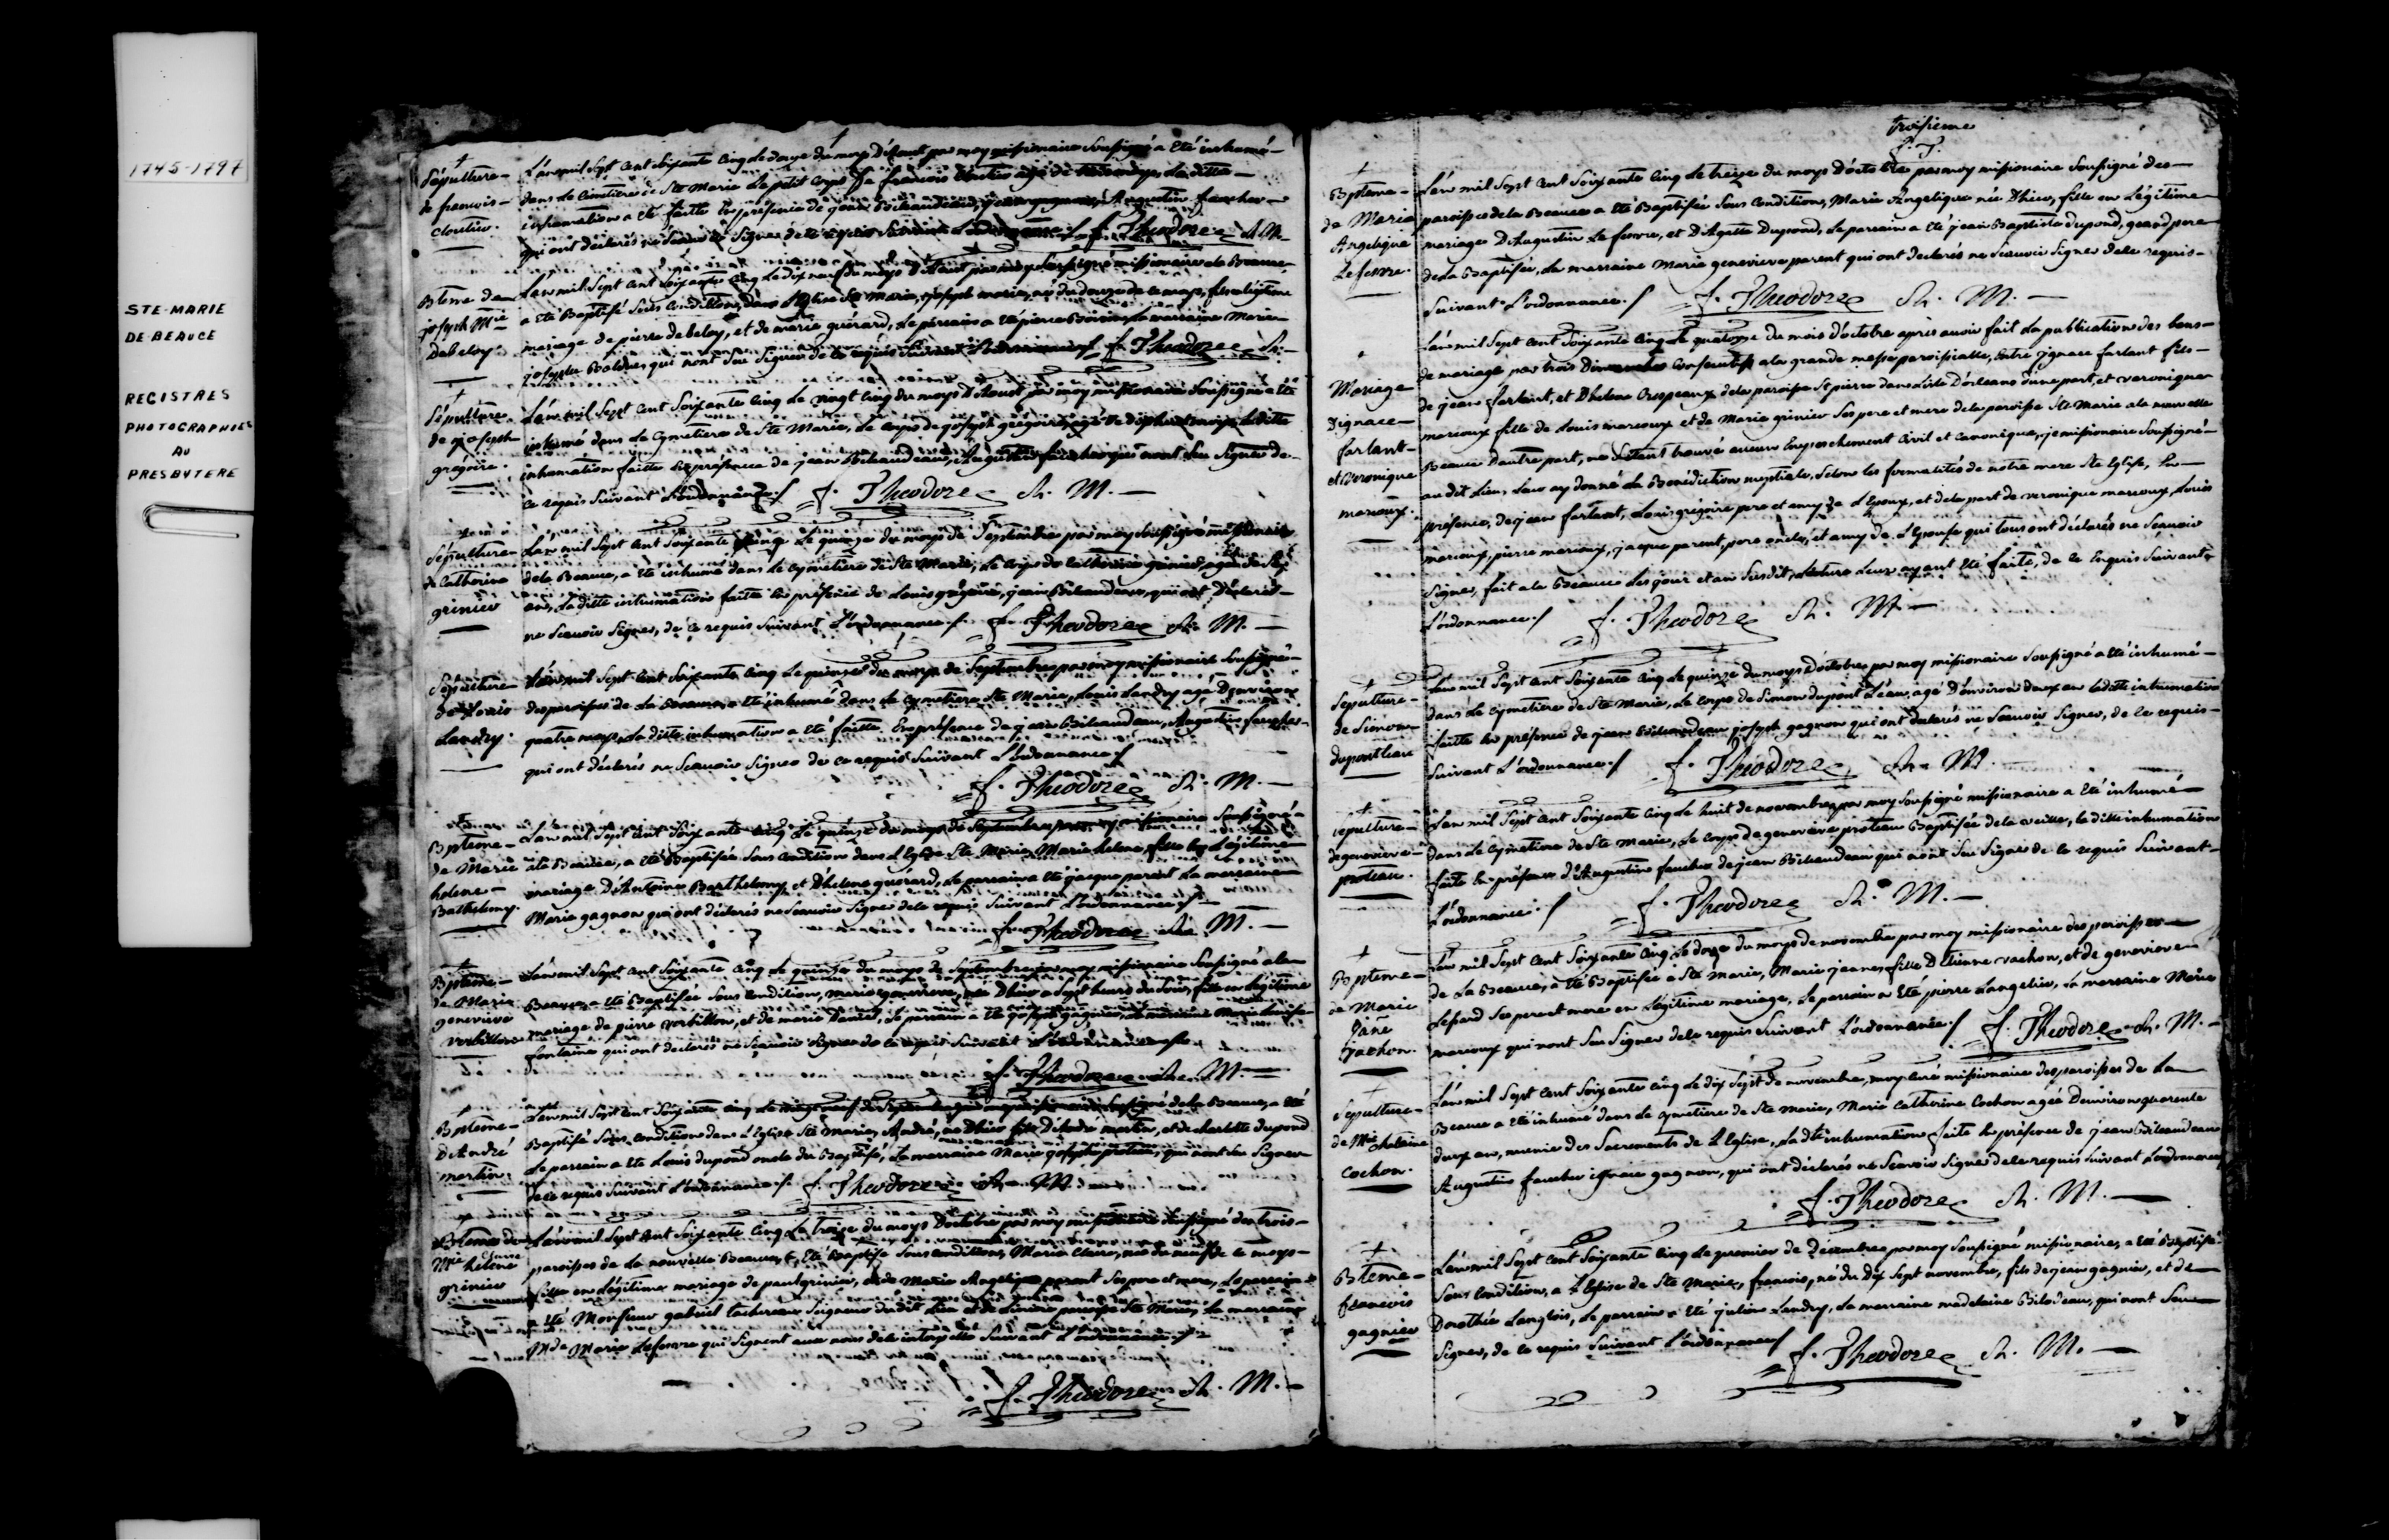 1745-1797
STE-MARIE
DE BEAUCE
REGISTRES
PHOTOGRAPHIÉS
AU
PRESBYTERE
Sépulture
de francois
cloutier.
L'an mil Sept Cent Soixante Cinq le douze du moys D'Aoust par moy missionaire Soussigné a Eté inhumé
dans le Cimetiere de Ste Marie le petit corps de francois Cloutier agé de moys, la ditte
inhumation a Eté faitte En présence de jean Bileaudeau, Augustin faucher
qui ont declarés ne Scavoir Signer de ce requis Suivant L'ordonnance / f. Theodore R. M.
Bteme de
joseph Mie
Debeloy
L'an mil Sept Cent Soixante Cinq le dix neuf du moys D'Aoust par moy Soussigné missionaire de la Beauce
a Eté Baptisé Sous Condition dans l'Eglise Ste Marie, joseph marie, né du douze de ce moys, fils en légitime
mariage de pierre debeloy, et de marie guérard, le parrain a Eté pierre la marraine Marie
josephe qui n'ont Sçu Signer de ce requis Suivant L'ordonnance / f. Theodore R.
Sépulture
de joseph
grégoire.
L'an mil Sept Cent Soixante Cinq le vingt Cinq du moys D'Aoust par moy missionaire Soussigné a Eté
inhumé dans le Cymetiere de Ste Marie, le corps de joseph grégoire, agé de dixhuit moys, la ditte
inhumation faitte En présence de jean Bileaudeau, Augustin faucher qui n'ont Sçu Signer de
ce requis Suivant L'ordonnance / f. Theodore R. M.
Sépulture
de Catherine
grinier
L'an mil Sept Cent Soixante Cinq le quinze du moys de Septembre par moy Soussigné missionaire
de la Beauce, a Eté inhumé dans le Cymetiere de Ste Marie, le corps de Catherine grinier, agée de
ans, la ditte inhumation faitte En présence de Louis grégoire, jean Bileaudeau, qui ont Déclarés
ne Scavoir Signer, de ce requis Suivant L'ordonnance /. f. Theodore R. M.
Sépulture
de Louis
Landry.
L'an mil Sept Cent Soixante Cinq le quinze du moys de Septembre par moy missionaire Soussigné
des paroisses de la Beauce, a Eté inhumé dans le Cymetiere Ste Marie, Louis Landry agé D'environ
quatre moys, la ditte inhumation a Eté faitte En présence de jean Bileaudeau, Augustin faucher
qui ont déclarés ne Scavoir Signer de ce requis Suivant L'ordonnance /
f. Theodore R. M.
Bpteme
de Marie
helene
Bathelemy.
L'an mil Sept Cent Soixante Cinq le quinze du moys de Septembre par moy missionaire Soussigné
a la Beauce, a Eté Baptisée Sous Condition dans l'Eglise Ste Marie, Marie helene, fille En Légitime
mariage d'Antoine Barthelemy et D'helene guérard, le parrain a Eté jacque parent la marraine
Marie gagnon qui ont déclarés ne Scavoir Signer de ce requis Suivant L'ordonnance /
f. Theodore R. M.
Bpteme
de Marie
geneviève
vorbillon
L'an mil Sept Cent Soixante Cinq le quinze du moys de Septembre par moy missionaire Soussigné a la
Beauce, a Eté Baptisée Sous Condition, marie genevieve, née D'hier a Sept heurs du Soir, fille en Légitime
mariage de pierre vorbillon, et de marie le parrain a Eté joseph gagnon, la marraine Marie
fontaine qui ont declarés ne Scavoir Signer de ce requis Suivant L'ordonnance
f. Theodore R. M.
Bpteme
D'André
martin.
L'an mil Sept Cent Soixante Cinq le vingt neuf de Septembre par moy missionaire Soussigné de la Beauce, a Eté
Baptisé Sous Condition dans l'Eglise Ste Marie, André, né D'hier fils D'Andre martin, et de charlotte dupond
le parrain a Eté Louis dupond oncle du Baptisé, la marraine Marie josephe qui n'ont Sçu Signer
de ce requis Suivant L'ordonnance /. f. Theodore R. M.
Bteme de
Mie Claire
helene
grinier
L'an mil Sept Cent Soixante Cinq le treize du moys D'octobre par moy missionaire Soussigné des trois
paroisses de La nouvelle Beauce, a Eté Baptisé Sous Condition, Marie Claire, née du neuf de ce moys
fille en Légitime mariage de paul grinier, et de Marie Angelique parent Ses pere et mere, le parrain
a Eté Monsieur gabriel tachereau Seigneur dudit Lieu paroisse Ste Marie, La marraine
Mde Marie Lefevre qui Signent avec nous Suivant L'ordonnance /
f. Theodore R. M.
troisieme
f. T.
Bpteme
de Marie
Angelique
Lefevre.
L'an mil Sept Cent Soixante Cinq le treize du moys D'octobre par moy missionaire Soussigné des
paroisses de la Beauce a Eté Baptisée Sous Condition, Marie Angelique née D'hier, fille en Légitime
mariage D'Augustin Lefevre, et D'Agatte Dupond, le parrain a Eté jean Baptiste dupond, grand pere
de la Baptisée, La marraine Marie genevieve parent qui ont declarés ne Scavoir Signer de ce requis
Suivant L'ordonnance / f. Theodore R. M.
Mariage
Dignace
farlant
et veronique
marcoux.
L'an mil Sept Cent Soixante Cinq le quatorze du mois D'octobre après avoir fait La publication des bans
de mariage par trois Dimanches Consecutifs a la grande messe paroissialle, Entre ignace farlant fils
de jean farlant, et D'helene Crespeaux de la paroisse St pierre dans L'isle D'orleans d'une part, et veronique
marcoux fille de Louis marcoux et de Marie grinier Ses pere et mere de la paroisse Ste Marie a la nouvelle
Beauce D'autre part, ne S'étant trouvé aucun Empeschement Civil et canonique, je missionaire Soussigné
au dit Lieu Leur ay donné La Bénédiction nuptiale, Selon les formalités de notre mere Ste Eglise, En
présence, de jean farlant, Louis grégoire pere et amy de L'Epoux, et de la part de veronique marcoux, Louis
marcoux, pierre marcoux, jacque parent, pere oncle, et amy de L'Epouse qui tous ont déclarés ne Scavoir
Signer, fait a la Beauce Les jour et an Susdit, Lecture Leur ayant Eté faitte, de ce Enquis Suivant
L'ordonnance / f. Theodore R. M.
Sepulture
de Simon
dupont leau
L'an mil Sept Cent Soixante Cinq Le quinze du moys D'octobre par moy missionaire Soussigné a Eté inhumé
dans le Cymetiere de Ste Marie, Le corps de Simon dupont L'eau, agé D'environ deux ans la ditte inhumation
faitte En présence de jean Bileaudeau joseph gagnon qui ont declarés ne Scavoir Signer, de ce requis
Suivant L'ordonnance / f. Theodore R. M.
Sepulture
de genevieve
proteau.
L'an mil Sept Cent Soixante Cinq Le huit de novembre par moy Soussigné missionaire a Eté inhumé
dans le Cymetiere de Ste Marie, Le corps de geneviève proteau Baptisée de la veille, la ditte inhumation
faitte En présence d'Augustin faucher de jean Bileaudeau qui n'ont Sçu Signer de ce requis Suivant
L'ordonnance. / f. Theodore R. M.
Bpteme
de Marie
jane
vachon.
L'an mil Sept Cent Soixante Cinq Le douze du moys de novembre par moy missionaire des paroisses
de La Beauce, a Eté Baptisée a Ste Marie, Marie jeanne fille D'Etienne vachon, et de genevieve
Lessard Ses pere et mere en Légitime mariage, Le parrain a Eté pierre Langelier, La marraine Marie
marcoux qui n'ont Sçu Signer de ce requis Suivant L'ordonnance / f. Theodore R. M.
Sepulture
de Mie
Cochon.
L'an mil Sept Cent Soixante Cinq Le dix Sept de novembre, moy curé missionaire des paroisses de La
Beauce a Eté inhumé dans Le Cymetiere de Ste Marie, Marie Catherine Cochon agée D'environ quarente
deux ans, munie des Sacrements de L'Eglise, La dte inhumation faite En présence de jean Bileaudeau
Augustin faucher ignace gagnon, qui ont déclarés ne Scavoir Signer de ce requis Suivant L'ordonnance
f. Theodore R. M.
Bteme
francois
gagnier
L'an mil Sept Cent Soixante Cinq Le premier de Décembre par moy Soussigné missionaire, a Eté Baptisé
Sous Condition, a L'Eglise de Ste Marie, francois, né du dix Sept novembre, fils de jean gagnier, et de
Dorothée Langlois, Le parrain a Eté julien Landry, La marraine madelaine Bilodeau, qui n'ont Sçu
Signer, de ce requis Suivant L'ordonnance / f. Theodore R. M.